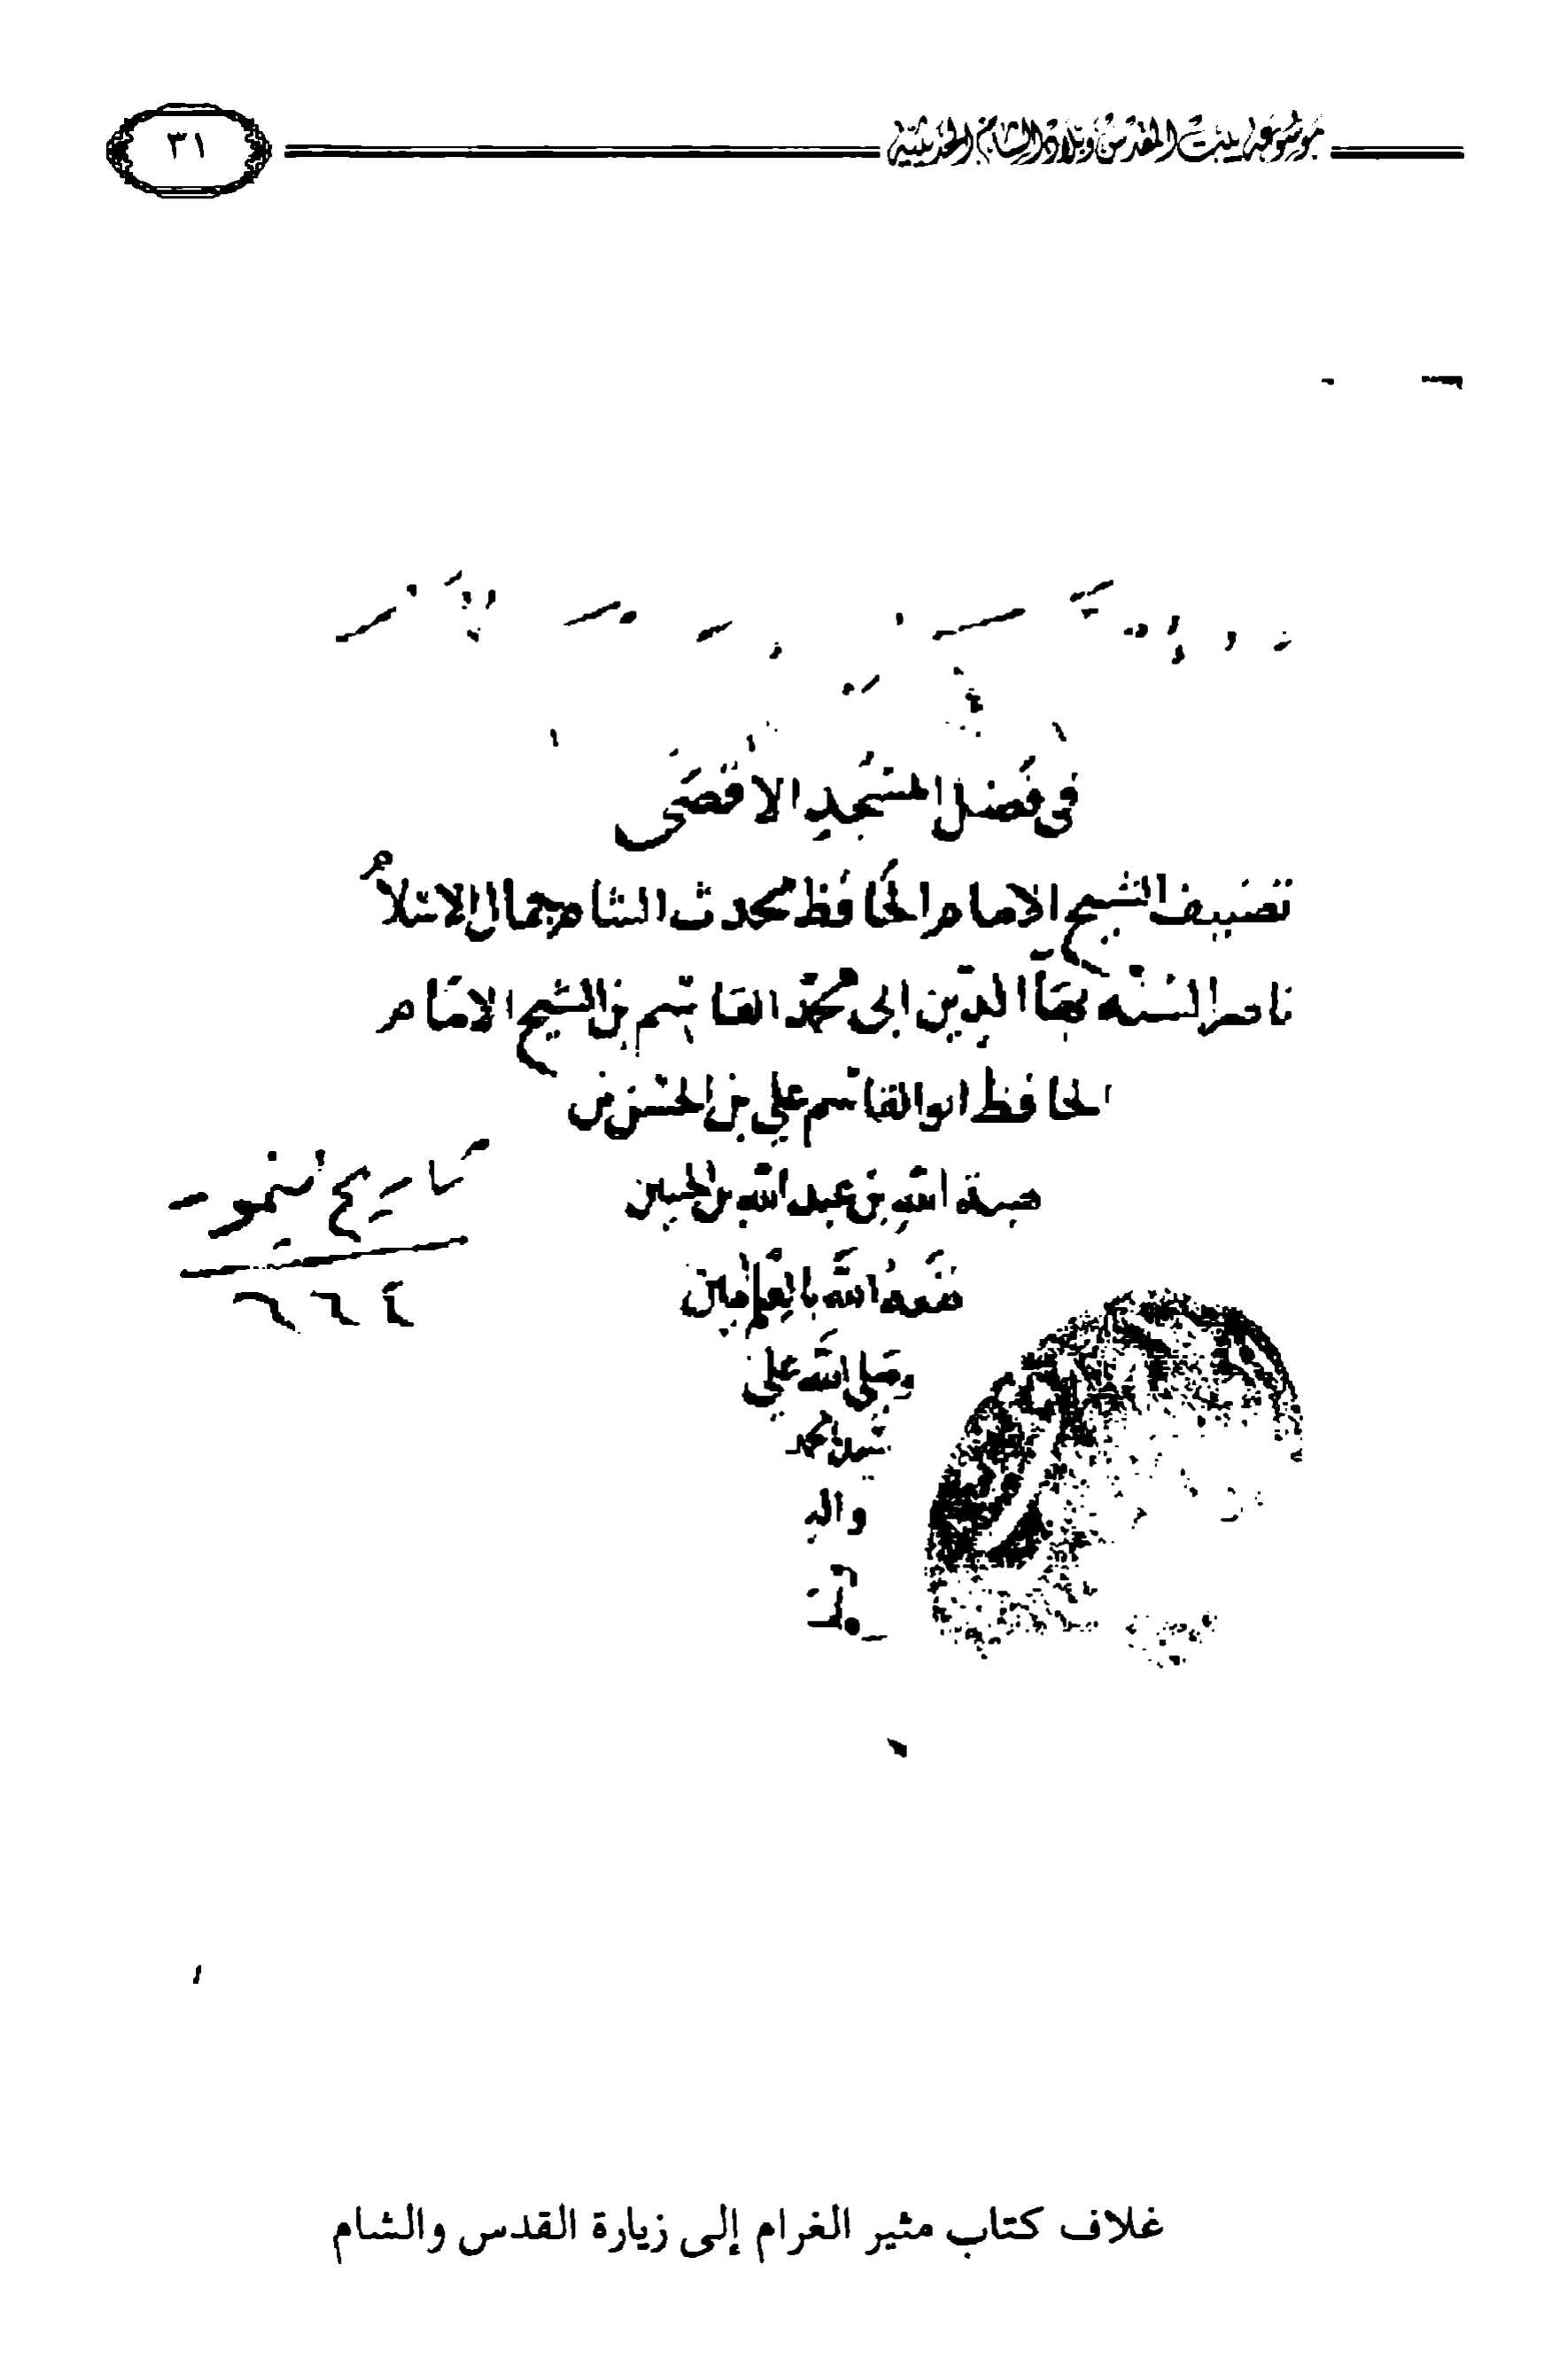 موسوعة بيت المقدس وبلاد الشام الحديثية
٣١
في فضل المسجد الاقصى
تصنيف الشيخ الامام الحافظ محدث الشام جمال الاسلام
ناصر السنه بهاء الدين ابى محمد القاسم بن الشيخ الامام
الحافظ ابو القاسم على بن الحسن بن
هبة الله بن عبد الله بن الحسين
نفعه الله بالعلم امين
وصلى الله على
سيدنا محمد
واله
تاريخ تيمور
غلاف كتاب مثير الغرام إلى زيارة القدس والشام